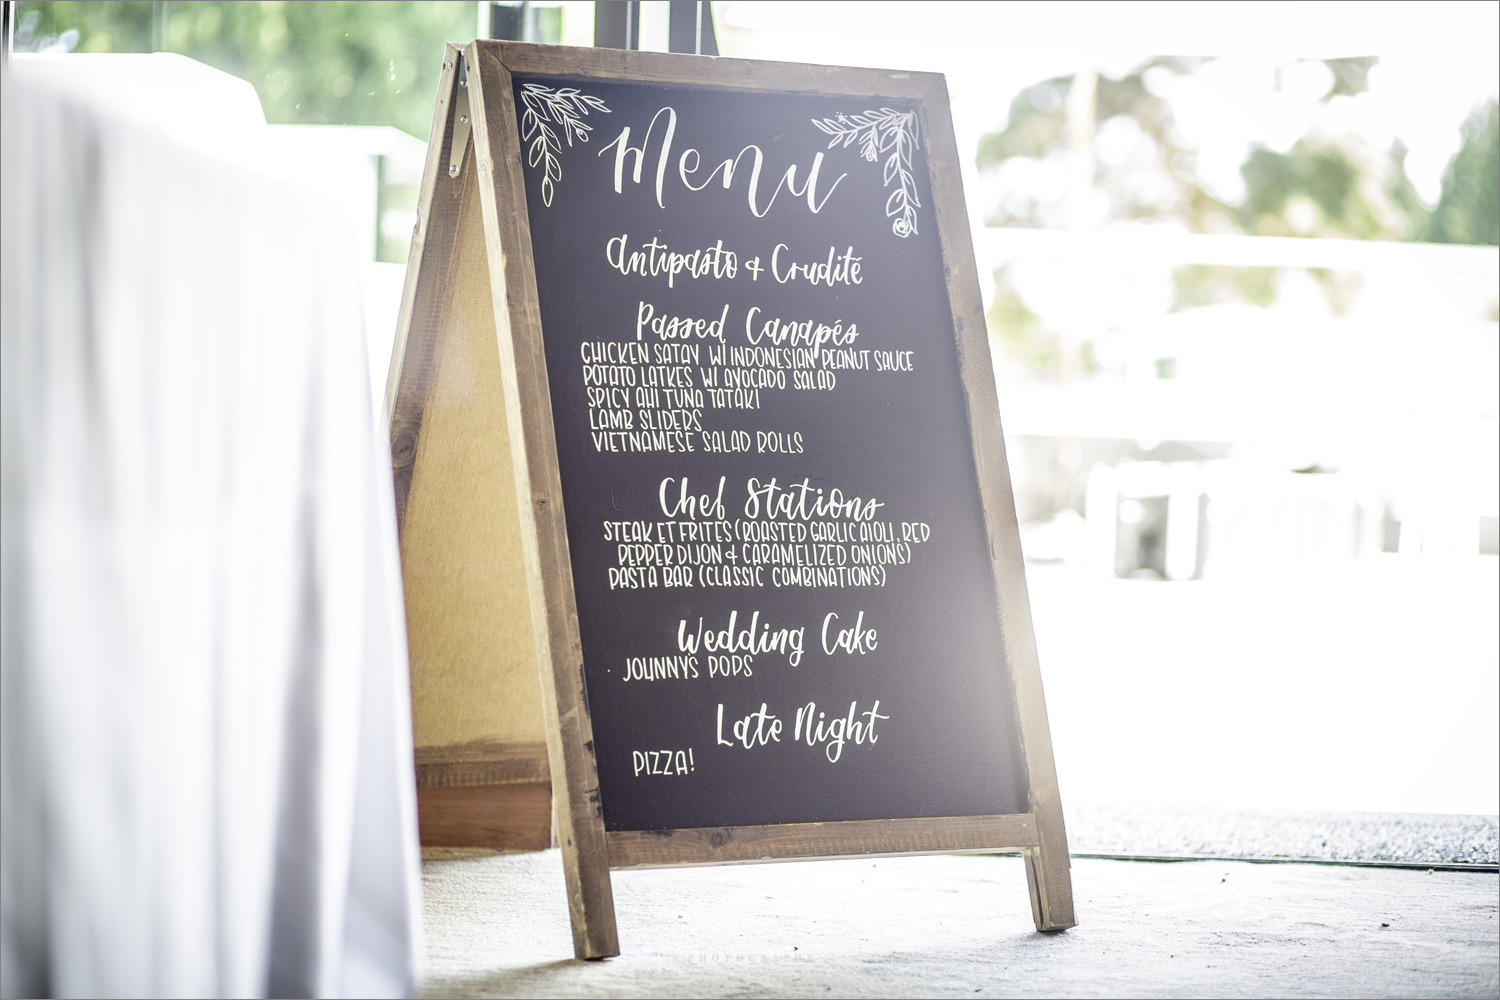 Menu
Antipasto & Crudité
Passed Canapés
CHICKEN SATAY W/ INDONESIAN PEANUT SAUCE
POTATO LATKES W/ AVOCADO SALAD
SPICY AHI TUNA TATAKI
LAMB SLIDERS
VIETNAMESE SALAD ROLLS
Chef Stations
STEAK ET FRITES (ROASTED GARLIC AIOLI, RED
PEPPER DIJON & CARAMELIZED ONIONS)
PASTA BAR (CLASSIC COMBINATIONS)
Wedding Cake
JOHNNY'S POPS
Late Night
PIZZA!
PHOTOGRAPHY